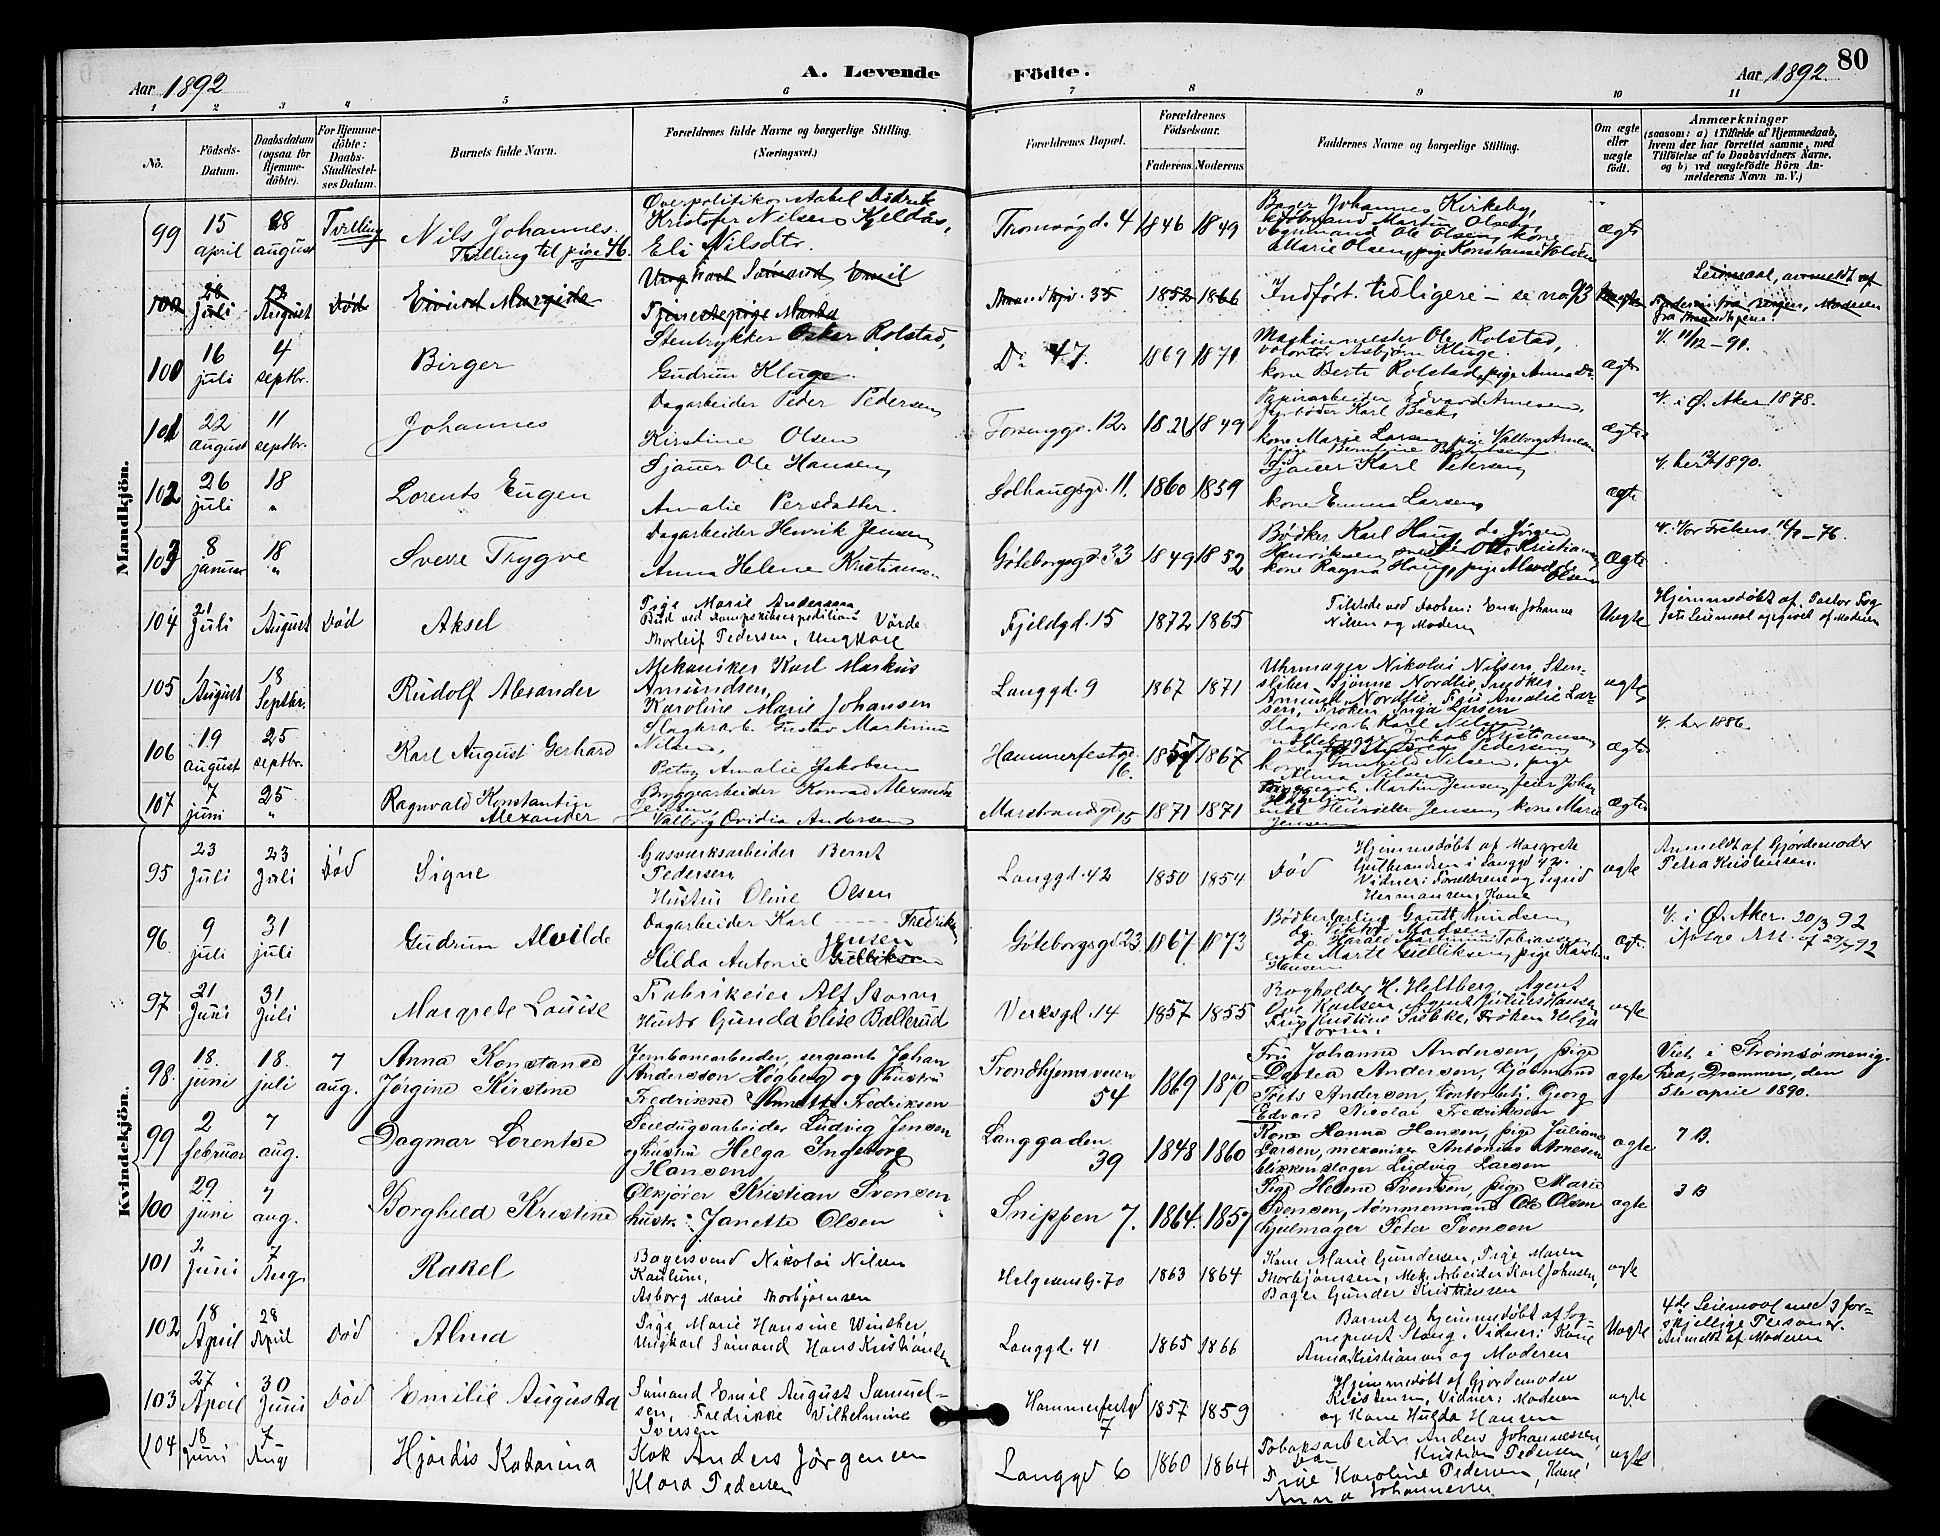 80
Aar 1892
A. Levende
Födte.
Aar 1892.
1 2 3 4 5 6 7 8 9 10 11
No.
Födsels-Datum.
Daabsdatum (ogsaa for Hjemme-döbte).
For Hjemme-döbte: Daabs-Stadfæstel-ses Datum.
Barnets fulde Navn.
Forældrenes fulde Navne og borgerlige Stilling. (Næringsvei.)
Forældrenes Bopæl.
Forældrenes Födselsaar.
Faderens. Moderens.
Faddernes Navne og borgerlige Stilling.
Om ægte eller uægte födt.
Anmærkninger (saasom: a) i Tilfælde af Hjemmedaab, hvem der har forrettet samme, med Tilföielse af to Daabsvidners Navne, og b) ved uægtefödte Börn An-melderens Navn m. V.)
Mandkjön.
99 15 april 28 august Tvilling Nils Johannes. Tvilling til pige 46.
Overpolitikonstabel Didrik Kristofer Nilsen Kjeldås, Eli Nilsdtr.
Tromsögd. 4 1846 1849
Bager Johannes Kirkeby, Martin Olsen, vognmand Ole Olsen, kone Marie Olsen, pige Konstanse Olsen
ægte
100 28 Juli 12 August Död Eivind Margido
Ungkarl Sömand Emil Tjenestepige Marta
Strandhjv. 35 1852 1866 Indfört tidligere – se no 93 Uægte
Leiermaal, anmeldt af Moderen
100 16 juli 4 septbr. Birger
Stentrykker Oskar Rolstad, Gudrun Kluge.
Do 47. 1869 1871
Maskinmester Ole Rolstad, volontör Asbjörn Kluge. kone Berte Rolstad, pige Anna Do.
ægte V. 11/12 – 91.
101 22 august 11 septbr. Johannes
Dagarbeider Peder Pedersen, Kirstine Olsen
12. 1849
Papirarbeider Edvard Arnesen, fyrböder Karl Beck, kone Marie Larsen, pige Valborg Arnesen
ægte V. i Ö. Aker 1878.
102 26 juli 18 " Lorents Eugen
Sjauer Ole Hansen, Amalie Persdatter.
Solhaugsgd. 11. 1860 1859
Sjauer Karl Petersen, kone Emma Larsen,
ægte V. her 1890.
103 8 januar 18 " Sverre Trygve
Dagarbeider Henrik Jensen, Anna Helene Kristiansen
Göteborgsgd. 33 1849 1852
Bödker Karl Haug, do Jörgen Henriksen, Ole Kristiansen, kone Ragna Haug, pige Olsen
ægte V. Vor Frelsers – 76.
104 21 Juli 1 August Död Aksel
Pige Marie Andersen, Bud ved Dampskibsexpedition Thorleif Pedersen, Ungkarl
Fjeldgd. 15 1872 1865
Tilstede ved Daaben: Johanne Nilsen og Moderen
Uægte
Hjemmedöbt af Pastor 1ste Leiermaal opgivet af Moderen
105 1 August 18 Septbr. Rudolf Alexander
Mekaniker Karl Markus Amundsen, Karoline Marie Johansen
Langgd. 9 1867 1871
Uhrmager Nikolai Nilsen, Sten-sliber Nordlie, Amund Nordlie, Frue Amalie Lar-sen, Fröken Inga Larsen
ægte
106 19 august 25 septbr. Karl August Gerhard
Slagtearb. Gustav Martinius Nilsen, Betsy Amalie Jakobsen
Hammerfestgd. 16. 1857 1867
Slagterarb. Karl Nilsen, Jakob Kristiansen, Pedersen, kone Gunhild Nilsen, pige Alma Nilsen
ægte V. her 1886.
107 7 juni 25 " Ragnvald Konstantin Alexander
Bryggearbeider Konrad Alexander Jensen, Valborg Ovidia Andersen
Marstrandsgd. 15 1871 1871
Bryggearb. Martin Jensen, enke Henriette Jensen, kone Marie Jensen
ægte
Kvindekjön.
95 23 Juli 23 Juli Död Signe
Gasværksarbeider Bernt Pedersen Hustru Oline Olsen
Langgd. 42 1850 1854 Död
Hjemmedöbt af Margrete Gulbrandsen i Langgd 42. Vidner: Forældrene og Sigrid Hermansen, Kone
ægte Anmeldt af Gjordemoder Petra Kristensen.
96. 9 juli 31 juli Gudrun Alvilde
Dagarbeider Karl Fredrik Jensen Hilda Antonie Gulliksen
Göteborgsgd. 23 1867. 1873
Bödkerlærling Gault Knudsen, do Viktor Madsen do Harald Tobiasen enke Marte Gulliksen, pige Karoline Hansen
ægte V. i Ö. Aker. 20/3 92
97 21 Juni 31 Juli Margrete Louise
Fabrikeier Alf Storm Hustr Gunda Elise Ballerud
Verksgd. 14 1857 1855
Bogholder H. Heltberg, Agent Ove Karlsen, Agent Julius Hansen Frue Kristine Fröken Helga Storm.
ægte
98. 18. juni 18. juli 7 aug. Anna Konstance Jörgine Kirstine
Jernbanearbeider, sergeant Johan Andersson Högberg og hustru Fredrikke Annette Fredriksen
Trondhjemsveien 54 1869 1870
Fru Johanne Andersen, pige Dortea Andersen, kjöbmand Andersen, kontorbetj. Georg Edvard Nicolai Fredriksen
ægte Viet i Strömsö menig-hed, Drammen, den 5te april 1890.
99 2 februar 7 aug. Dagmar Lorentse
Seildugsarbeider Ludvig Jensen og hustru Helga Ingeborg Hansen
Langgaden 39 1848 1860
Kone Hanna Hansen, pige Juliane Larsen, mekaniker Antonius Arnesen blikkenslager Ludvig Larsen
ægte 7 B.
100 29 juni 7 aug. Borghild Kristine
Ölkjörer Kristian Svensen hustr: Janette Olsen
Snippen 7. 1864. 1857
Pige Helene Svensen, pige Marie Svensen, tömmermand Ole Olsen hjulmager Peter Svensen
ægte 3 B
101 2. Juni 7 Aug. Rakel
Bagersvend Nikolai Nilsen Kaulum, Asborg Marie Thorbjörnsen
Helgesens G. 70 1863 1864
Kone Marie Gundersen, Pige Maren Thorbjörnsen, Mek. Arbeider Karl Johnsen, Bager Gunder Kristiansen
ægte
102 18 April 28 April Död Alma
Pige Marie Hansine Winther, Ungkarl Sömand Hans Kristiansen
Langgd. 41 1865 1866
Barnet er hjemmedöbt af Sog-neprest Stang. Vidner: Kone Anna Kristiansen og Moderen
Uægte 4de Leiermaal med 3 for-skjellige Personer. Anmeldt af Moderen
103 27 April 30 Juni Död Emilie Augusta
Sömand Emil August Samuel-sen, Fredrikke Vilhelmine Iversen
Hammerfestgd 7 1857 1859
Hjemmedöbt af Gjordemoder Kristensen, Vidner: Moderen og Kone Hulda Hansen
ægte
104 18 Juni 7 Aug Hjördis Katarina
Kok Anders Jörgensen Klara Pedersen
Langgd 6 1860 1864
Tobaksarbeider Anders Johannessen, Kristian Pedersen, Frue Karoline Pedersen, Kone Anna Johannessen
ægte